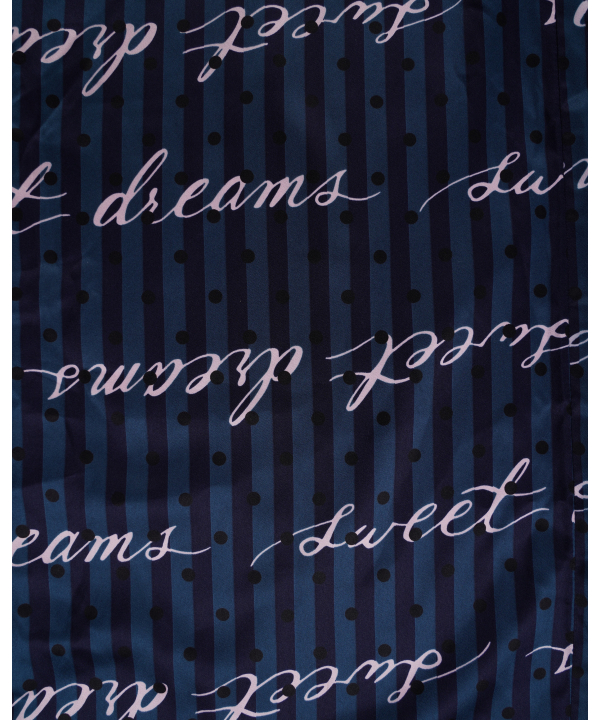 sweet dream
t dreams swe
sweet dreams
eams sweet
sweet drea